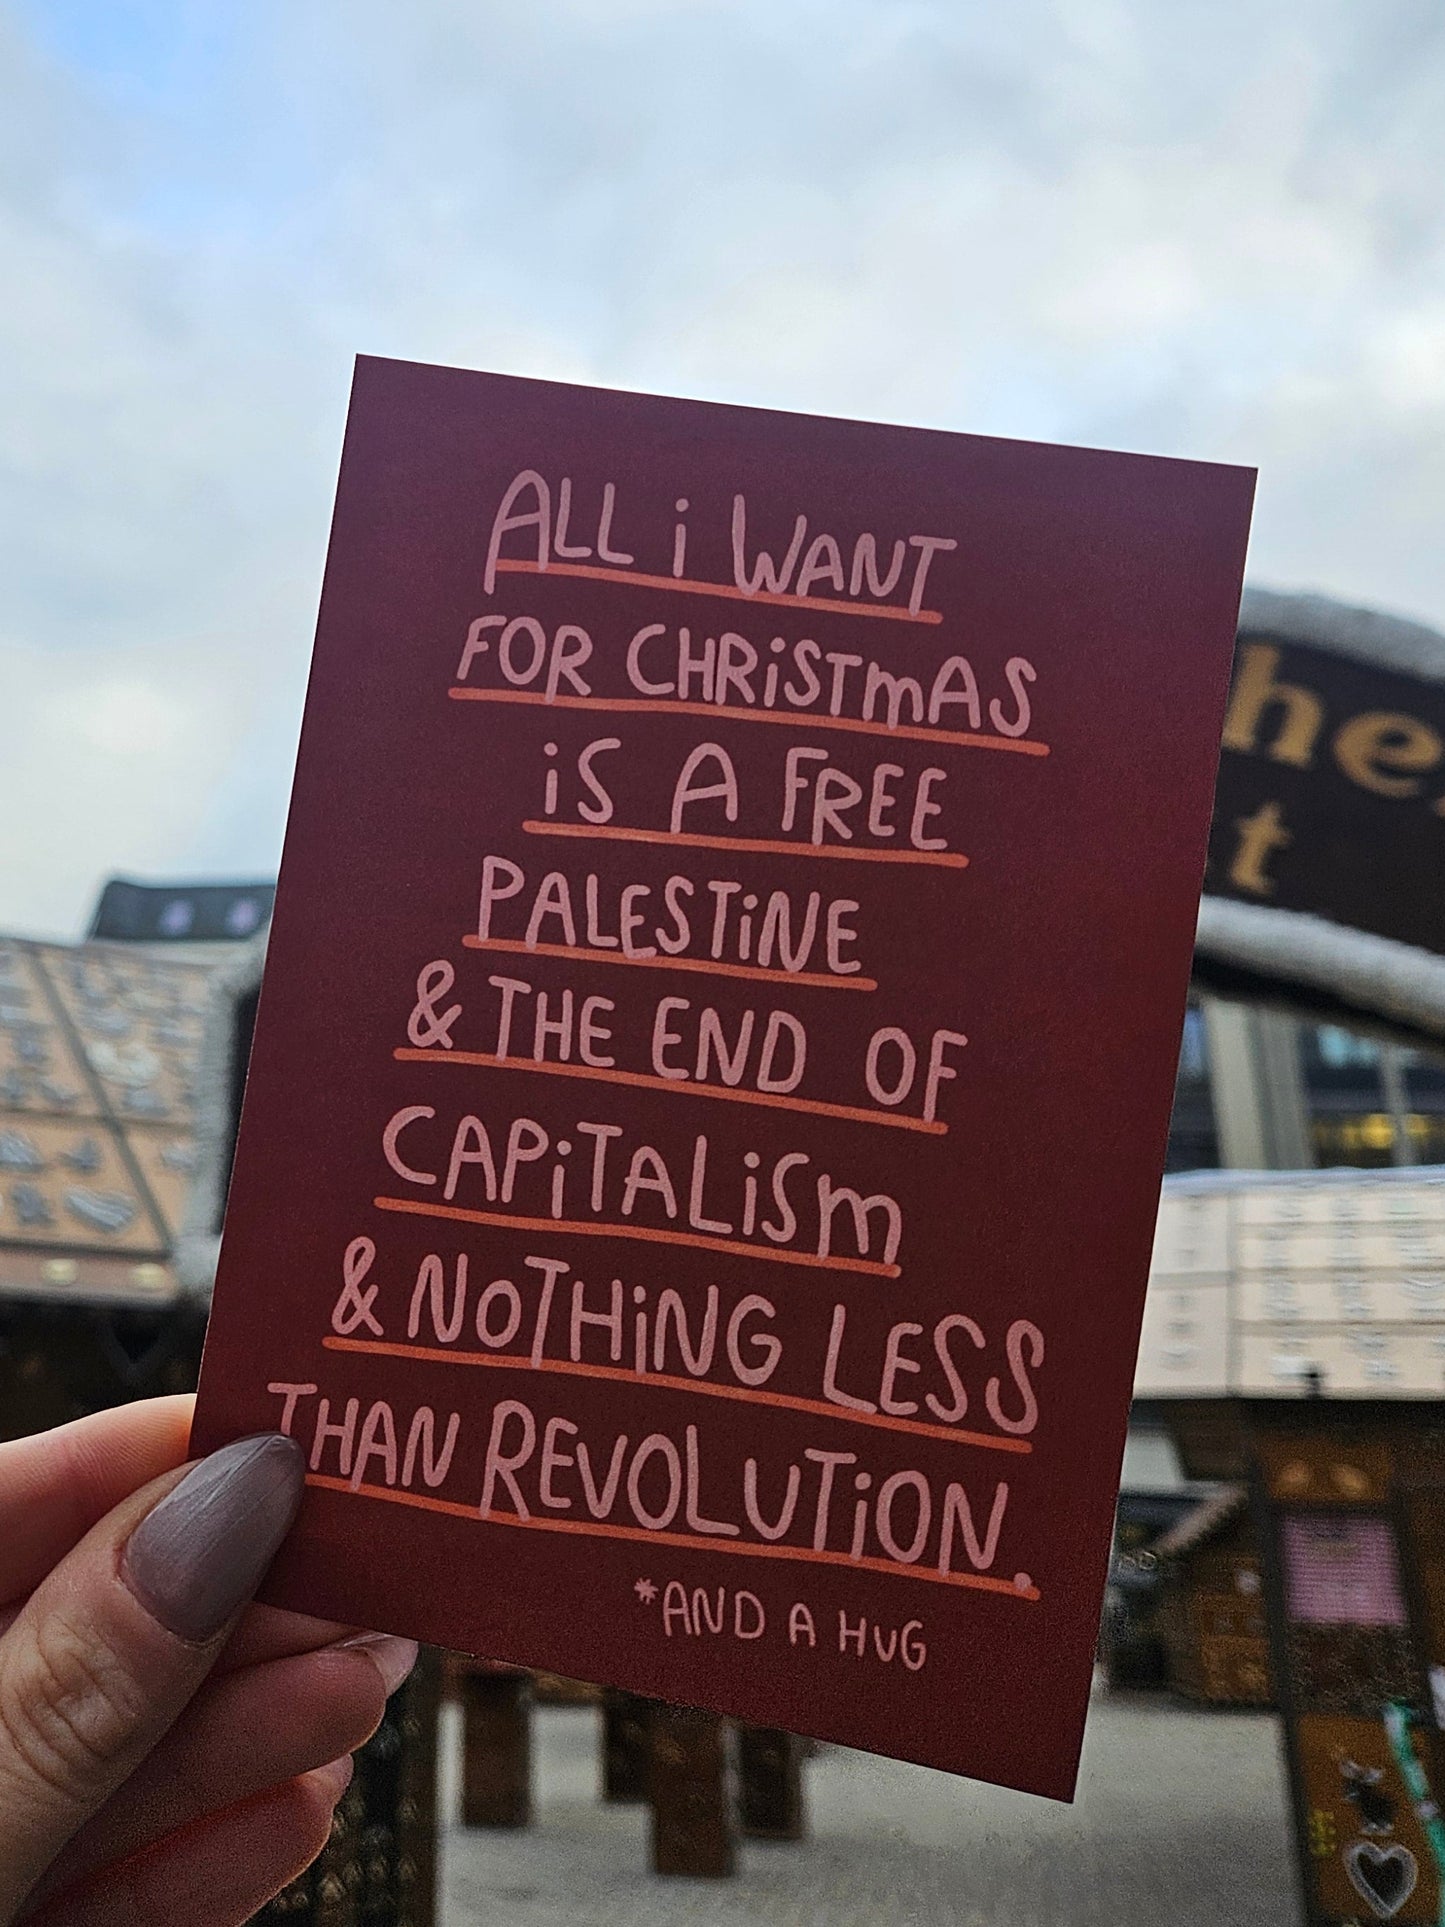 ALL i WANT
FOR CHRiSTmAS
iS A FREE
PALESTiNE
& THE END OF
CAPiTALiSm
& NOTHiNG LESS
THAN REVOLUTiON.
*AND A HUG